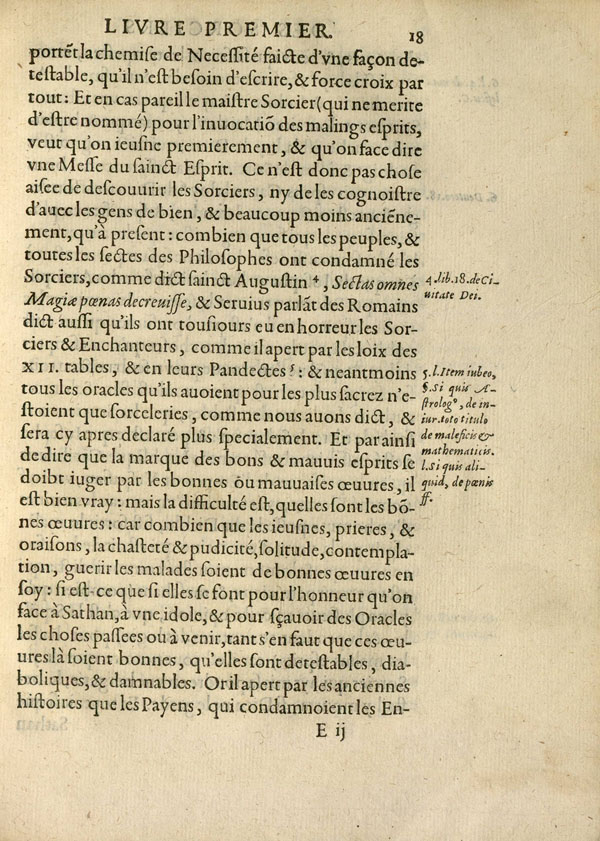 LIVRE PREMIER.
18
portẽt la chemise de Necessité faicte d'vne façon de-
testable, qu'il n'est besoin d'escrire, & force croix par
tout: Et en cas pareil le maistre Sorcier (qui ne merite
d'estre nommé) pour l'inuocatiõ des malings esprits,
veut qu'on ieusne premierement, & qu'on face dire
vne Messe du sainct Esprit. Ce n'est donc pas chose
aisee de descouurir les Sorciers, ny de les cognoistre
d'auec les gens de bien, & beaucoup moins anciẽne-
ment, qu'à present: combien que tous les peuples, &
toutes les sectes des Philosophes ont condamné les
Sorciers, comme dict sainct Augustin 4, Sectas omnes
Magiæ pœnas decreuisse, & Seruius parlãt des Romains
dict aussi qu'ils ont tousiours eu en horreur les Sor-
ciers & Enchanteurs, comme il apert par les loix des
XII. tables, & en leurs Pandectes 5: & neantmoins
tous les oracles qu'ils auoient pour les plus sacrez n'e-
stoient que sorceleries, comme nous auons dict, &
sera cy apres declaré plus specialement. Et par ainsi
de dire que la marque des bons & mauuis esprits se
doibt iuger par les bonnes ou mauuaises œuures, il
est bien vray: mais la difficulté est, quelles sont les bõ-
nes œuures: car combien que les ieusnes, prieres, &
oraisons, la chasteté & pudicité, solitude, contempla-
tion, guerir les malades soient de bonnes œuures en
soy: si est-ce que si elles se font pour l'honneur qu'on
face à Sathan, à vne idole, & pour sçauoir des Oracles
les choses passees ou à venir, tant s'en faut que ces œu-
ures là soient bonnes, qu'elles sont detestables, dia-
boliques, & damnables. Or il apert par les anciennes
histoires que les Payens, qui condamnoient les En-
E ij
4. lib. 18. de Ci-
uitate Dei.
5. l. Item iubeo,
§. Si quis A-
strolog⁹, de in-
iur. toto titulo
de maleficis &
mathematicis.
l. Si quis ali-
quid, de pœnis
ff.